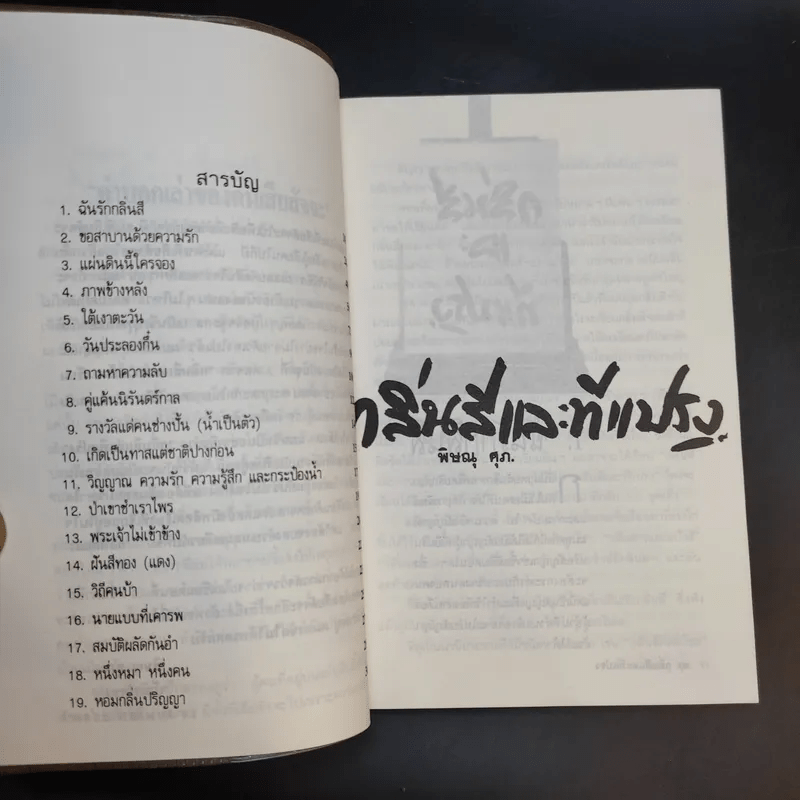 สารบัญ
1. ฉันรักกลิ่นสี
2. ขอสาบานด้วยความรัก
3. แผ่นดินนี้ใครจอง
4. ภาพข้างหลัง
5. ใต้เงาตะวัน
6. วันประลองกึ๋น
7. ถามหาความลับ
8. คู่แค้นนิรันดร์กาล
9. รางวัลแด่คนช่างปั้น (น้ำเป็นตัว)
10. เกิดเป็นทาสแต่ชาติปางก่อน
11. วิญญาณ ความรัก ความรู้สึก และกระป๋องน้ำ
12. ป่าเขาชำเราไพร
13. พระเจ้าไม่เข้าข้าง
14. ฝันสีทอง (แดง)
15. วิถีคนบ้า
16. นายแบบที่เคารพ
17. สมบัติผลัดกันอำ
18. หนึ่งหมา หนึ่งคน
19. หอมกลิ่นปริญญา
กลิ่นสีและทีแปรง
พิษณุ ศุภ.